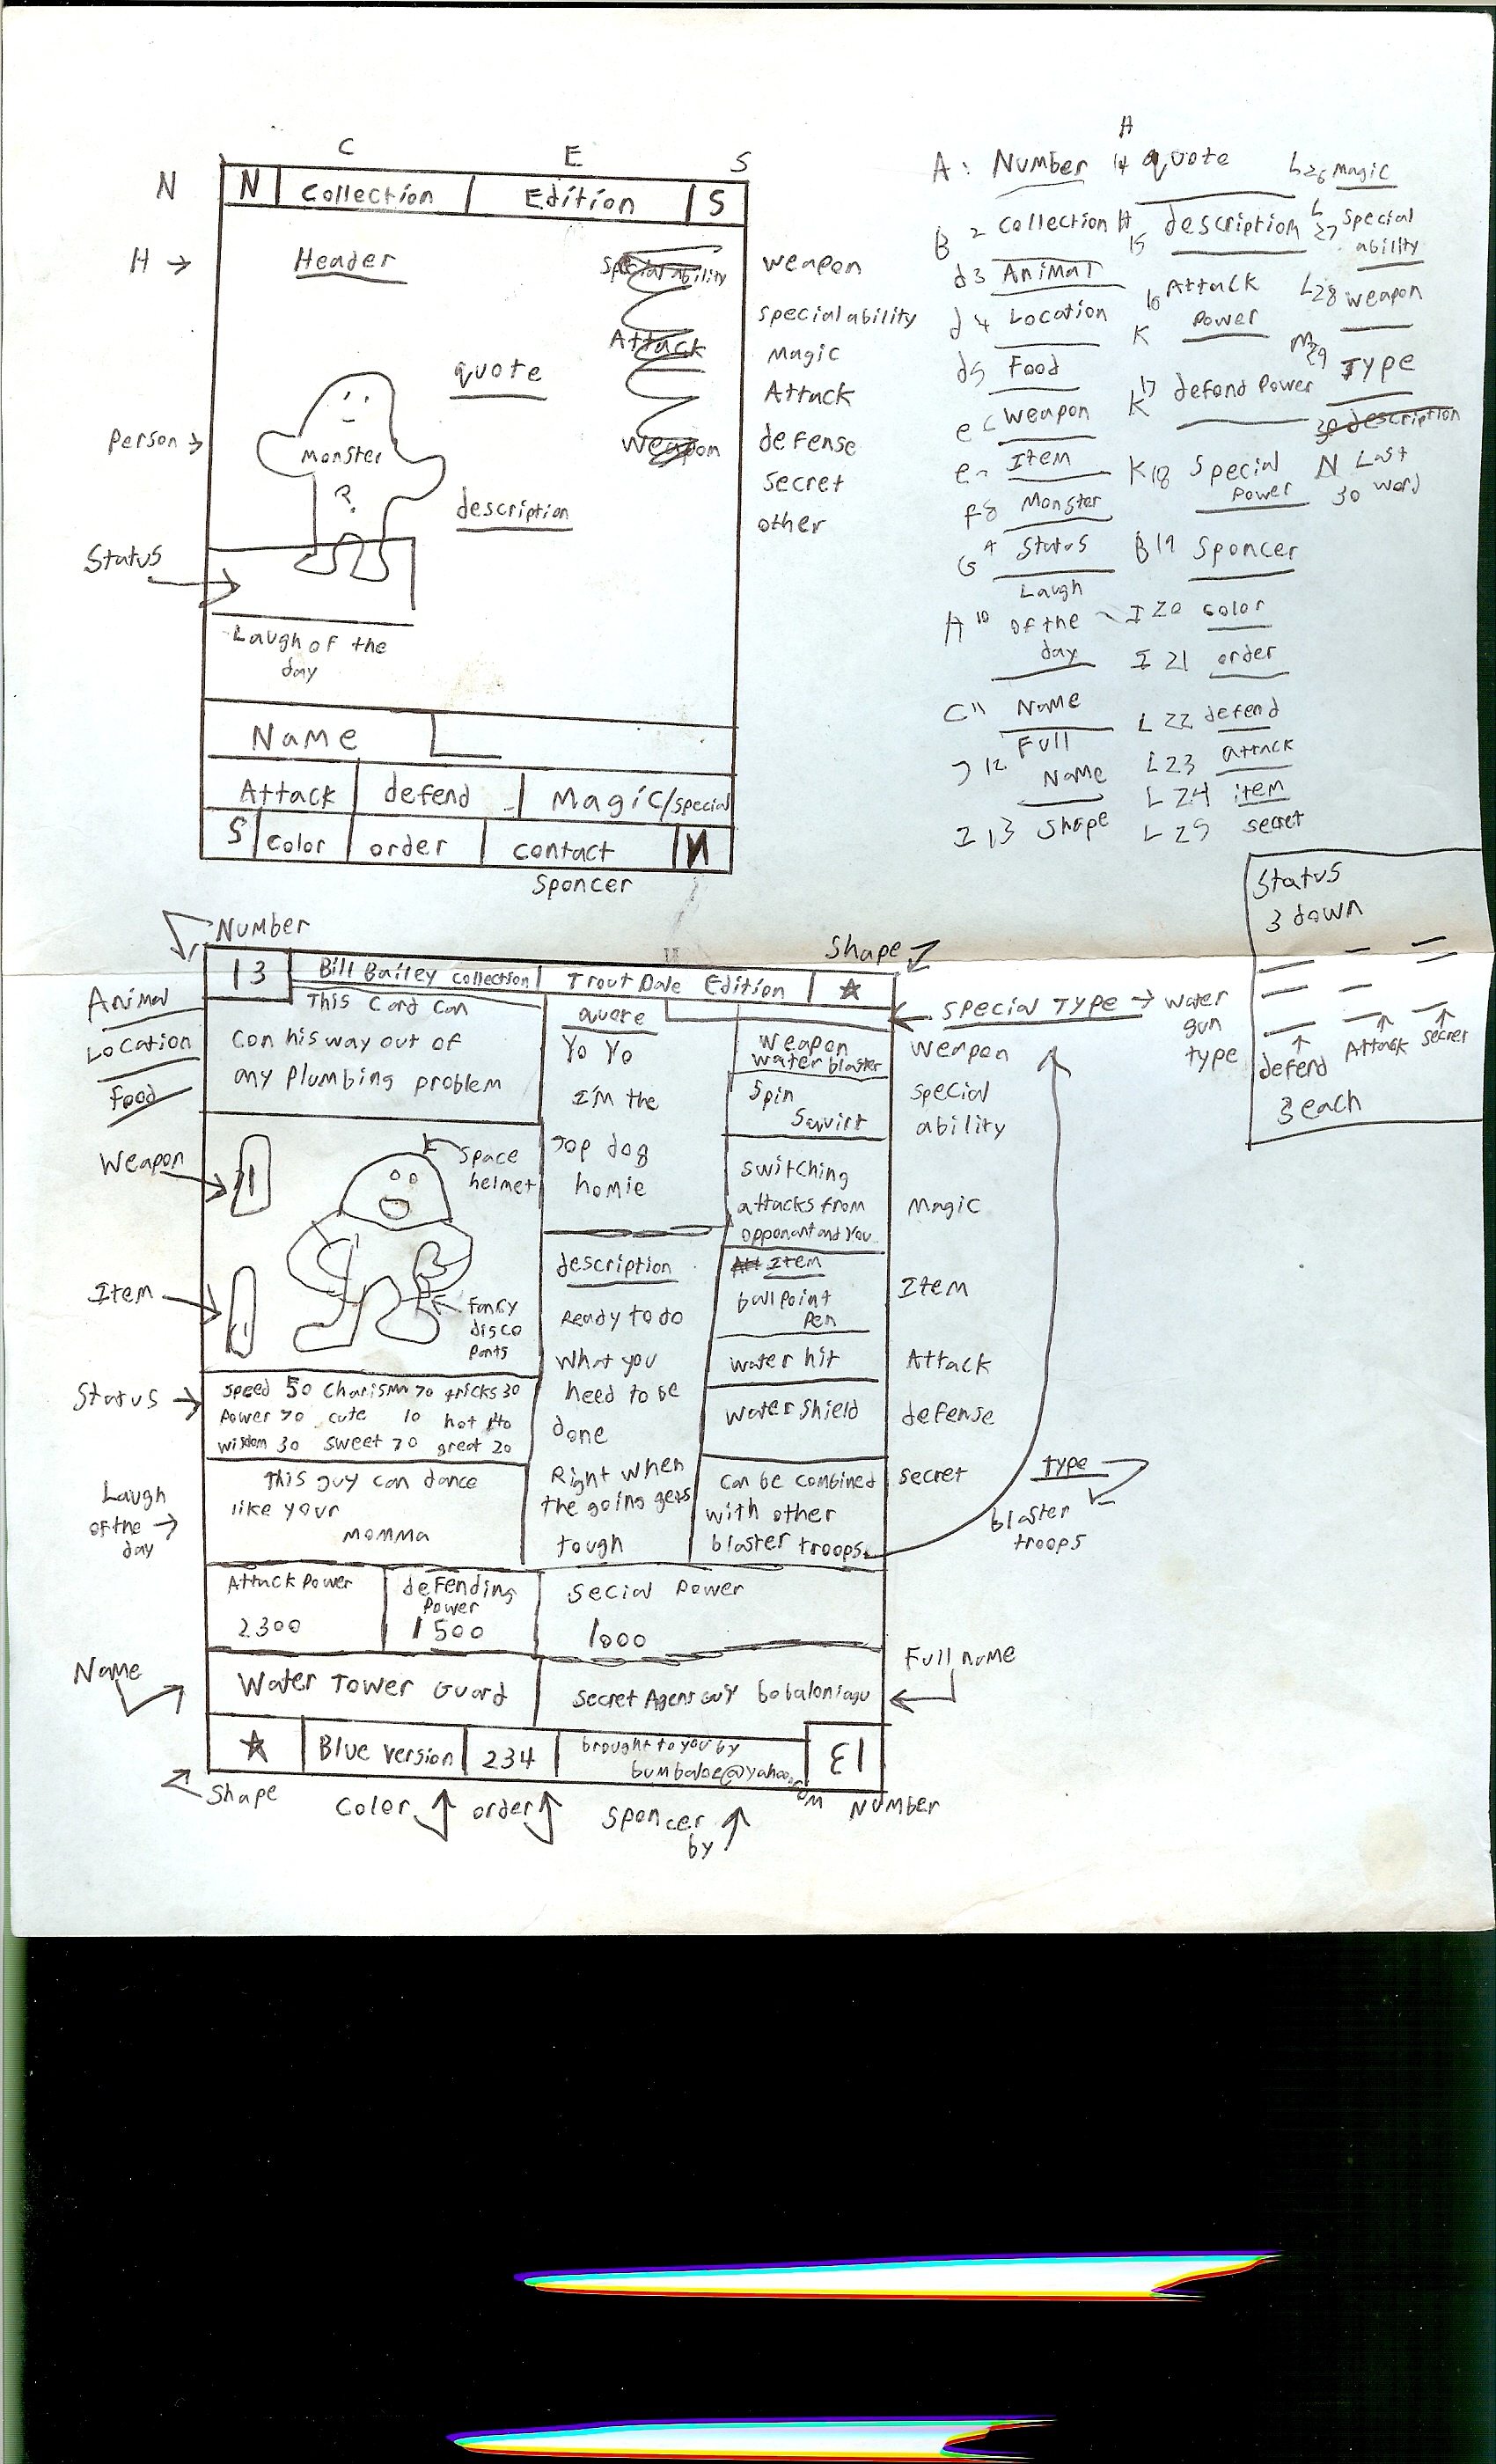 C E S
N
N Collection Edition S
H →
Header
Special ability
Attack
Weapon
quote
Person →
Monster
?
description
Status
Laugh of the
day
weapon
special ability
Magic
Attack
defense
secret
other
Name
Attack defend Magic/special
S color order contact N
Sponcer
A: Number
B 2 Collection
d3 Animal
d 4 Location
d5 Food
e Weapon
e Item
F8 Monster
G Status
H 10 Laugh
of the
day
C 11 Name
J 12 Full
Name
I 13 Shape
H
14 quote
H 15 description
K 16 Attack
Power
K 17 defend Power
K18 Special
Power
B 19 Sponcer
I 20 color
I 21 order
L 22 defend
L 23 attack
L 24 item
L 25 secret
L26 Magic
L 27 Special
ability
L28 weapon
M29 Type
30 description
N Last
30 word
Status
3 down
defend Attack secret
3 each
Number
Shape
13 Bill Bailey collection Trout Dale Edition
Animal
Location
Food
This Card Can
Con his way out of
any Plumbing problem
Weapon
Item
space
helmet
fancy
disco
pants
Status →
speed 50 Charisma 70 tricks 30
Power 70 cute 10 hot
wisdom 30 sweet 70 great 20
Laugh
of the →
day
This guy can dance
like your
momma
quote
Yo Yo
I'm the
Top dog
homie
description
Ready to do
What you
need to be
done
Right when
the going gets
tough
Weapon
water blaster
Spin
Squirt
switching
attacks from
opponant and you
Item
ball point
Pen
water hit
Water shield
can be combined
with other
blaster troops
Special Type → water
gun
type
Weapon
special
ability
Magic
Item
Attack
defense
secret
type
blaster
troops
Attack Power
2300
defending
Power
1500
Secial Power
1000
Name
Water Tower Guard
Secret Agent Guy bobaloniagu
Full name
Blue version 234
brought to you by
bumbaloe@yahoo.com
13
Shape
Color
order
Sponcer
by
Number